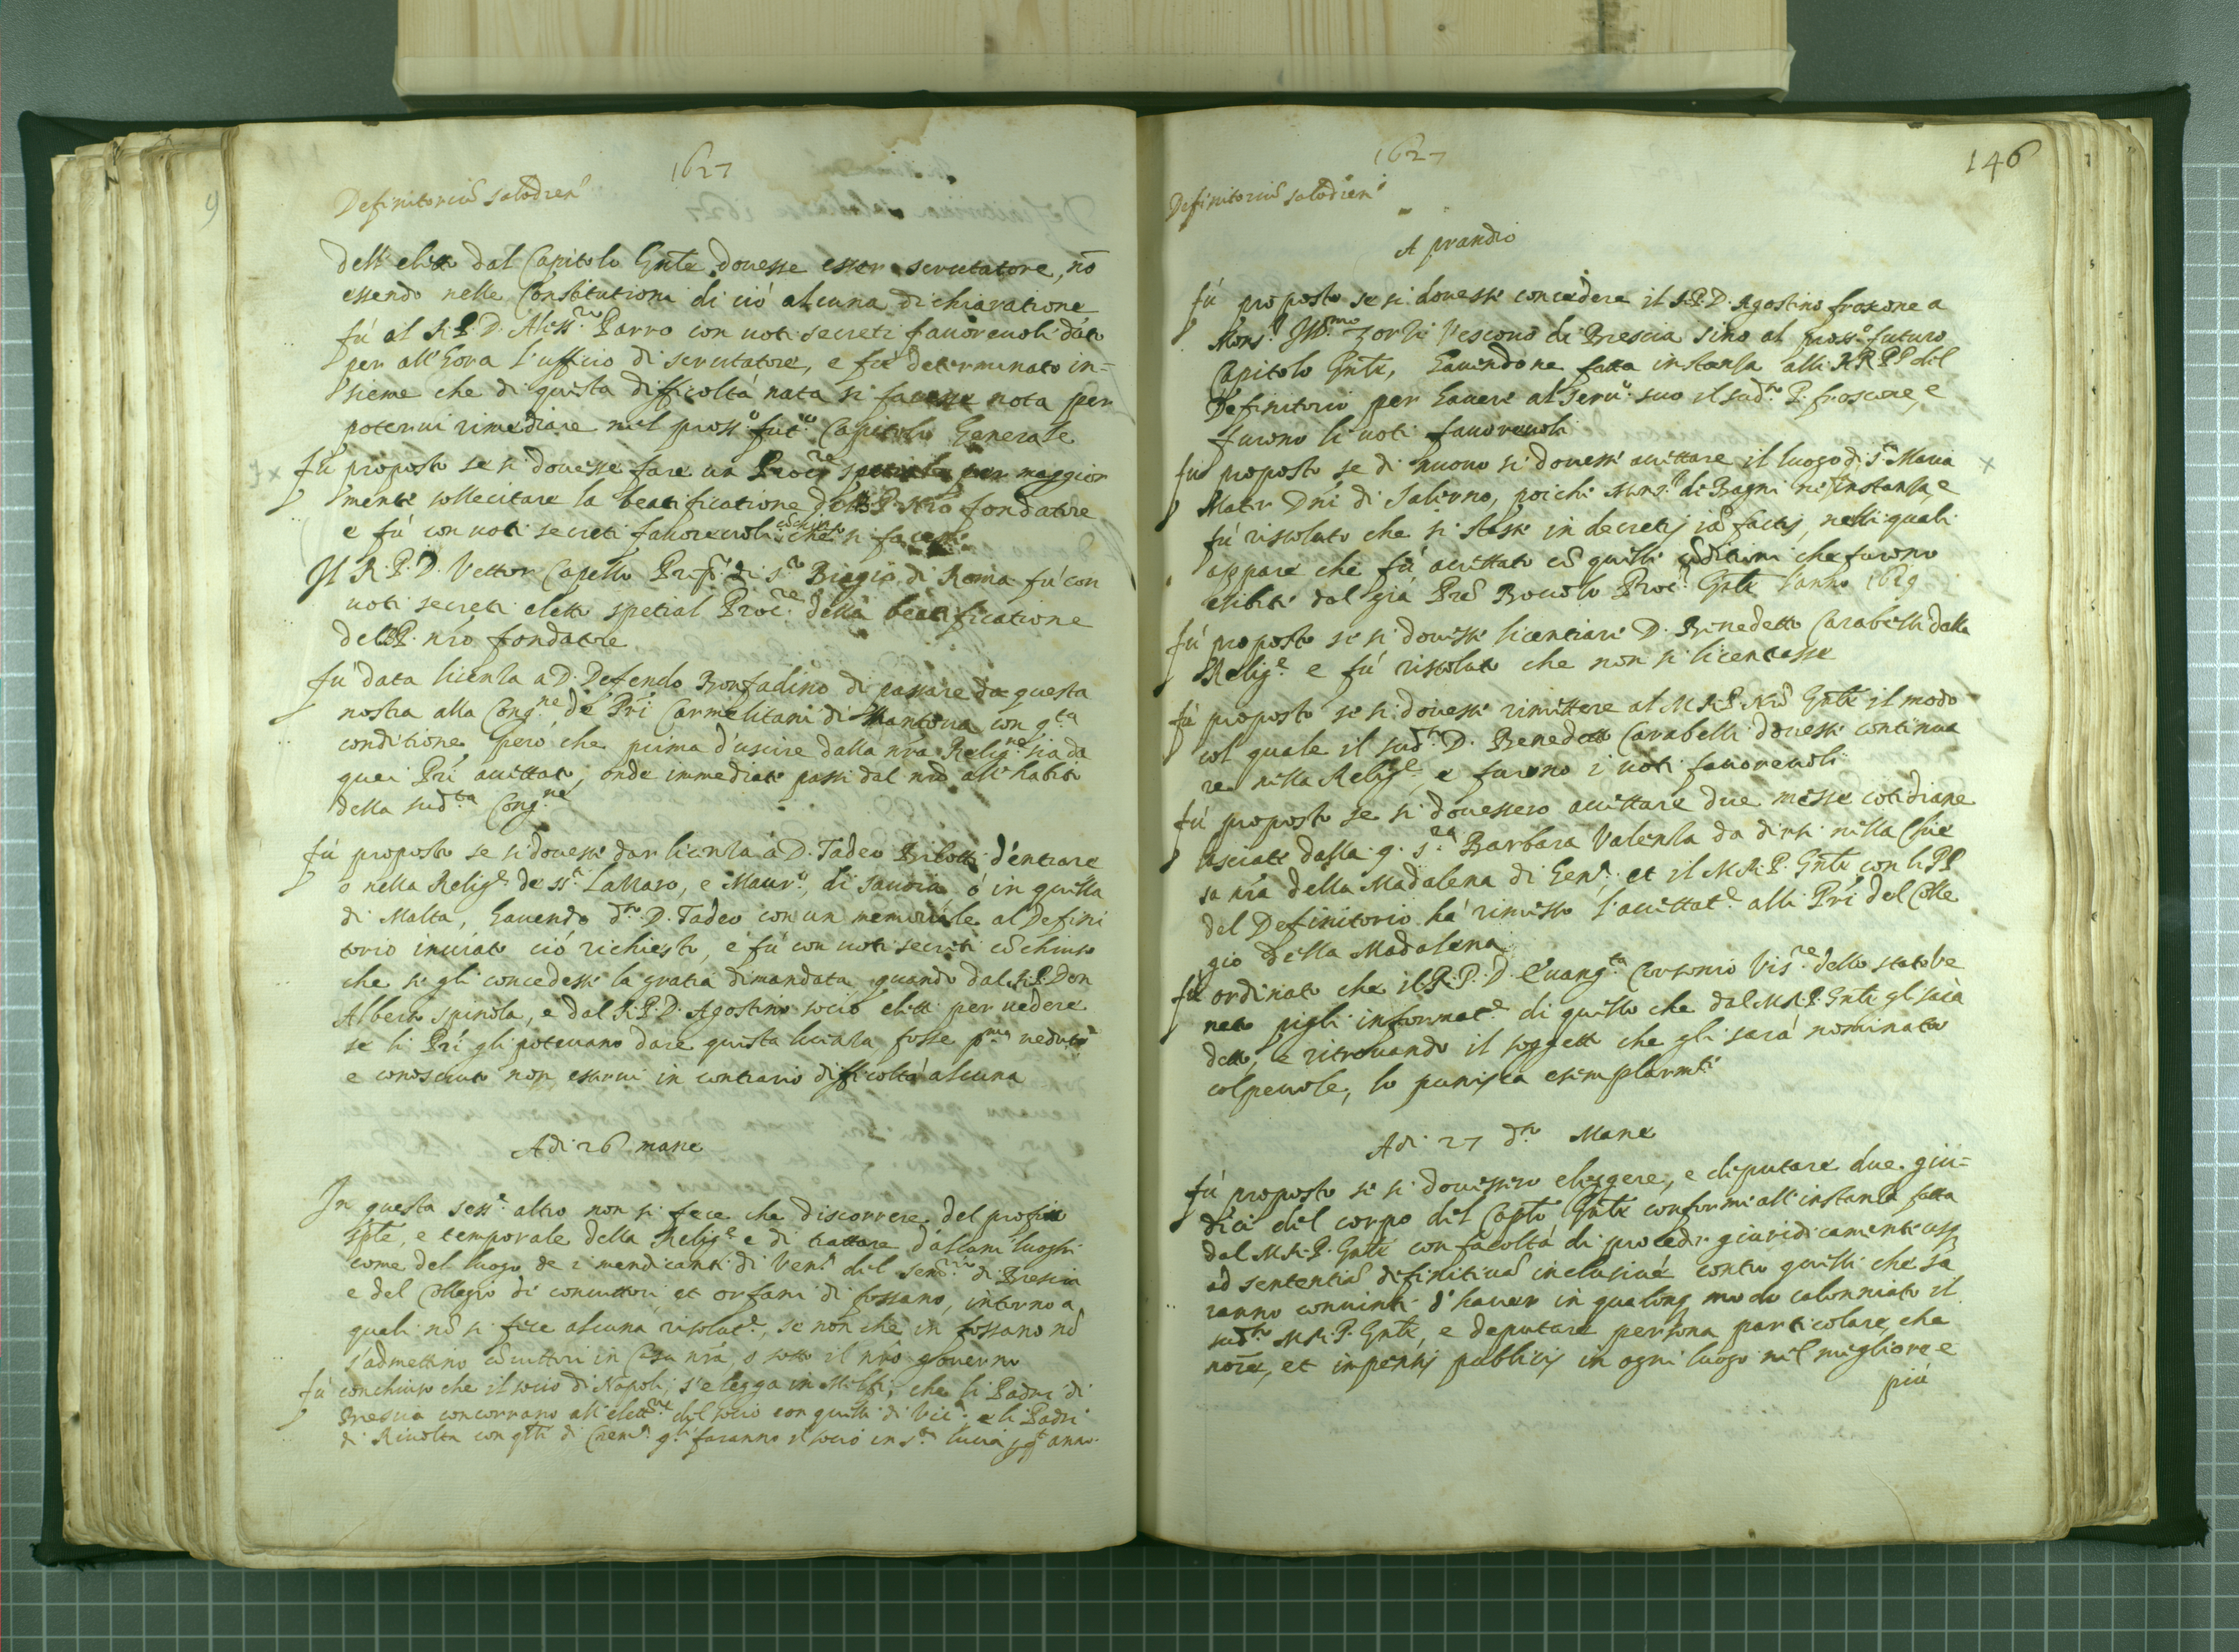 1627
Definitoriũ Salodien̄
dell'eletto dal Capitolo Gn̄le douesse esser scrutatore, nō
essendo nelle Constitutioni di ciò alcuna dichiaratione
fù al R.P.D. Aless.ro Parro con uoti secreti fauoreuoli dato
per all'hora l'ufficio di scrutatore, e fù determinato in=
sieme che di questa difficoltà nata si facesse nota per
poterui rimediare nel pross.o fut.o Capitolo Generale
fù proposto se si douesse fare un Proc.re spetiale per maggior
mente sollecitare la beatificatione del P. nr̄o fondatore
e fù con uoti secreti fauoreuoli cōchiuso che si facesse
Il R.P.D. Vettor Capello Prep.to di S.to Biagio di Roma fù con
uoti secreti eletto spetial Proc.re della beatificatione
del P. nr̄o fondatore
fù data licenza a D. Defendo Bonfadino di passare da questa
nostra alla Cong.ne de Pri Carmelitani di Mantoua con q.ta
conditione però che prima d'uscire dalla nr̄a Relig.ne sia da
quei Pri accettato, onde immediate passi dal nr̄o all'habito
della sud.ta Cong.ne
fù proposto se si douesse dar licenza à D. Tadeo Bilotti d'entrare
o nella Relig.e de SS.ti Lazzaro, e Maur.o di Sauoia ò in quella
di Malta, hauendo d.to D. Tadeo con un memoriale al Defini
torio inuiato ciò richiesto, e fù con uoti secreti cōchiuso
che se gli concedesse la gratia dimandata quando dal R.P. Don
Alberto Spinola, e dal R.P.D. Agostino socio eletti per uedere
se li Pri gli poteuano dare questa licenza fosse p.ma ueduto
e conosciuto non esserui in contrario difficoltà alcuna
Adi 26 mane
In questa sess.e altro non si fece che discorrere del profitto
sp̄le, e temporale della Relig.e e di trattare d'alcuni luoghi
come del luogo de i mendicanti di Ven.a del Sem.rio di Brescia
e del Collegio di conuittori et orfani di fossano, intorno a
quali nō si fece alcuna risolut.e, se non che in fossano nō
s'admettino cōuittori in Casa nr̄a, o sotto il nr̄o gouerno
fù conchiuso che il socio di Napoli s'elegga in Melfi, che li Padri di
Brescia concorrano all'elett.ne del socio con quelli di Vic.a e li Padri
di Riuolta con q̄lli di Crem.a q.li faranno il socio in S.ta Lucia p q̄st'anno
1627
146
Definitoriũ Salodien̄
A prandio
fù proposto se si douesse concedere il R.P.D. Agostino froscone a
Mons.r Ill.mo Zorzi Vescouo di Brescia sino al pross.o futuro
Capitolo Gn̄le, hauendone fatta instanza alli RR.PP. del
Definitorio per hauere al seru.o suo il sud.to P. froscone, e
furono li uoti fauoreuoli
fù proposto se di nuouo si douesse accettare il luogo di S.ta Maria
Mater Dn̄i di Salerno, poiche Mons.r di Bagni ne fà instanza, e
fù risoluto che si stesse in decretis iā factis, nelli quali
appare che fù accettato cō quelle cōditioni che furono
esibite dal già Pr̄e Bouolo Proc.re Gn̄le l'anno 1619
fù proposto se si douesse licentiare D. Benedetto Carabelli dalla
Relig.e e fù risoluto che non si licentiasse
fù proposto se si douesse rimettere al M.R.P. Nr̄o Gn̄le il modo
col quale il sud.to D. Benedetto Carabelli douesse continua
re nella Relig.e, e furono i uoti fauoreuoli
fù proposto se si douessero accettare due messe cotidiane
lasciate dalla q. S.ra Barbara Valenza da dirsi nella Chie
sa nr̄a della Madalena di Gen.a, et il M.R.P. Gn̄le con li PP.
del Definitorio hà rimesso l'accettat.e alli Pri del Colle
gio della Madalena
fù ordinato che il R.P.D. Euang.ta Corsonio Vis.re dello stato Ve
neto pigli informat.e di quello che dal M.R.P. Gn̄le gli sarà
detto, e ritrouando il soggetto che gli sarà nominato
colpeuole, lo punisca esemplarm.te
Adi 27 d.to Mane
fù proposto se si douessero eleggere, e deputare due giu=
dici del corpo del Capto Gn̄le conforme all'instanza fatta
dal M.R.P. Gn̄le con facoltà di proceder giuridicamente usq
ad sententiã definitiuã inclusiuè contro quelli che sa
ranno conuinti d'hauer in qualonq modo calonniato il
sud.to M.R.P. Gn̄le, e deputare persona particolare, che
nōie, et inpensis publicis in ogni luogo nel migliore e
più